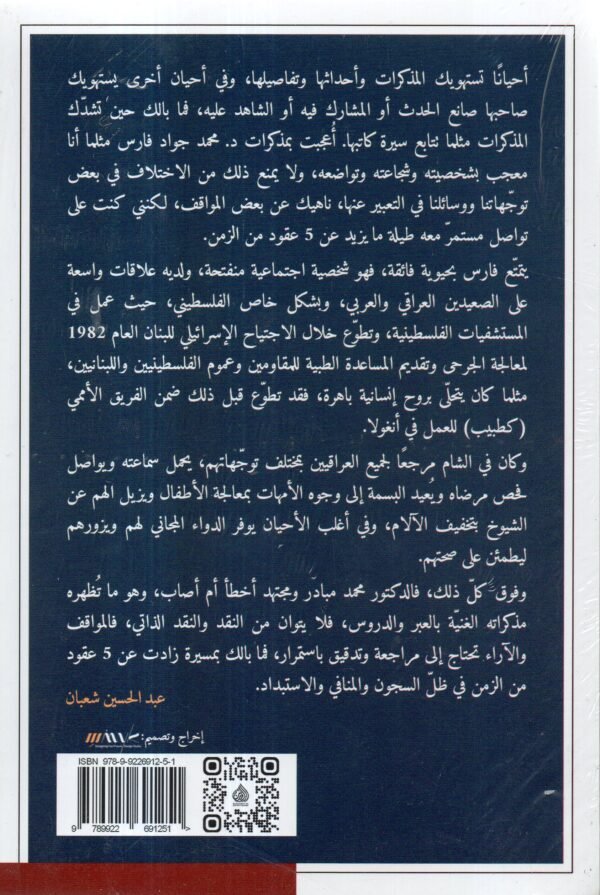 أحيانًا تستهويك المذكرات وأحداثها وتفاصيلها، وفي أحيان أخرى يستهويك
صاحبها صانع الحدث أو المشارك فيه أو الشاهد عليه، فما بالك حين تشدّك
المذكرات مثلما نتابع سيرة كاتبها. أُعجبت بمذكرات د. محمد جواد فارس مثلما أنا
معجب بشخصيته وشجاعته وتواضعه، ولا يمنع ذلك من الاختلاف في بعض
توجّهاتنا ووسائلنا في التعبير عنها، ناهيك عن بعض المواقف، لكنني كنت على
تواصل مستمرّ معه طيلة ما يزيد عن 5 عقود من الزمن.
يتمتّع فارس بحيوية فائقة، فهو شخصية اجتماعية منفتحة، ولديه علاقات واسعة
على الصعيدين العراقي والعربي، وبشكل خاص الفلسطيني، حيث عمل في
المستشفيات الفلسطينية، وتطوّع خلال الاجتياح الإسرائيلي للبنان العام 1982
لمعالجة الجرحى وتقديم المساعدة الطبية للمقاومين وعموم الفلسطينيين واللبنانيين،
مثلما كان يتحلّى بروح إنسانية باهرة، فقد تطوّع قبل ذلك ضمن الفريق الأممي
(كطبيب) للعمل في أنغولا.
وكان في الشام مرجعًا لجميع العراقيين بمختلف توجّهاتهم، يحمل سماعته ويواصل
فحص مرضاه ويُعيد البسمة إلى وجوه الأمهات بمعالجة الأطفال ويزيل الهم عن
الشيوخ بتخفيف الآلام، وفي أغلب الأحيان يوفر الدواء المجاني لهم ويزورهم
ليطمئن على صحتهم.
وفوق كلّ ذلك، فالدكتور محمد مبادر ومجتهد أخطأ أم أصاب، وهو ما تُظهره
مذكراته الغنيّة بالعبر والدروس، فلا يتوان من النقد والنقد الذاتي، فالمواقف
والآراء تحتاج إلى مراجعة وتدقيق باستمرار، فما بالك بمسيرة زادت عن 5 عقود
من الزمن في ظلّ السجون والمنافي والاستبداد.
عبد الحسين شعبان
إخراج وتصميم:
ISBN 978-9-9226912-5-1
9 789922 691251 >